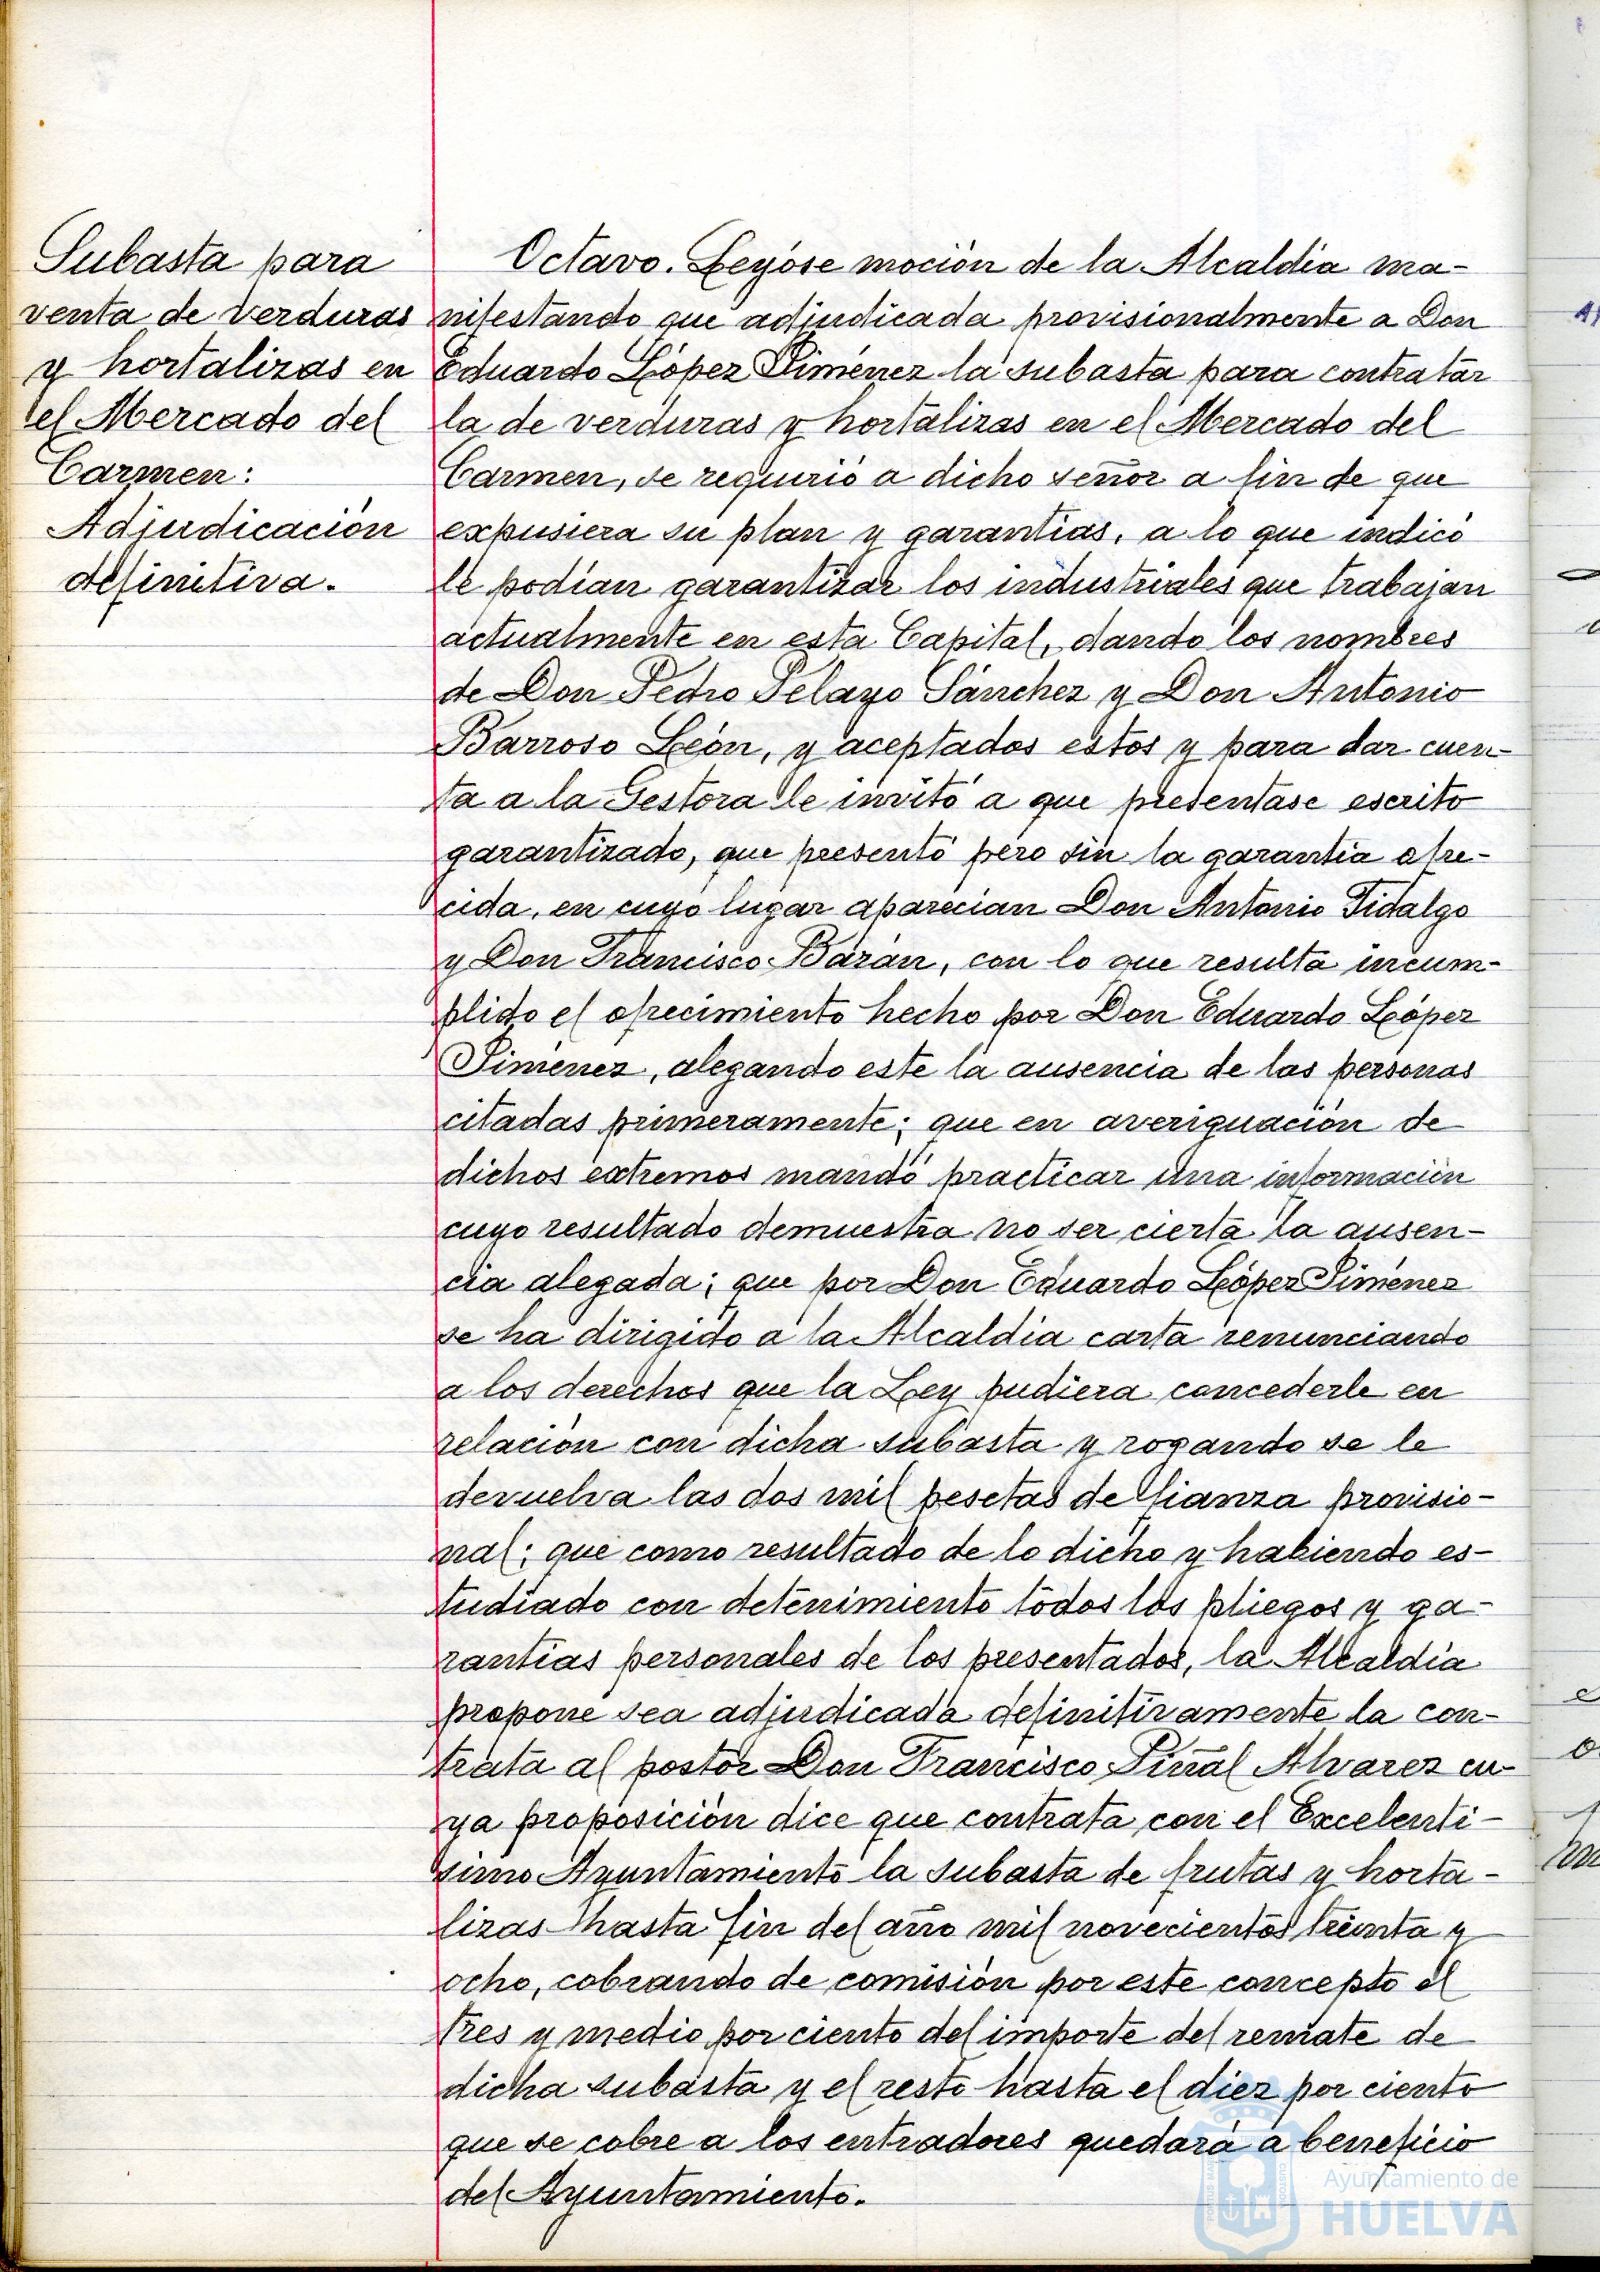 Subasta para
venta de verduras
y hortalizas en
el Mercado del
Carmen:
Adjudicación
definitiva.
Octavo. Leyóse moción de la Alcaldía ma-
nifestando que adjudicada provisionalmente a Don
Eduardo López Jiménez la subasta para contratar
la de verduras y hortalizas en el Mercado del
Carmen, se requirió a dicho señor a fin de que
expusiera su plan y garantías, a lo que indicó
le podían garantizar los industriales que trabajan
actualmente en esta Capital, dando los nombres
de Don Pedro Pelayo Sánchez y Don Antonio
Barroso León, y aceptados estos y para dar cuen-
ta a la Gestora le invitó a que presentase escrito
garantizado, que presentó pero sin la garantía ofre-
cida, en cuyo lugar aparecían Don Antonio Fidalgo
y Don Francisco Bazán, con lo que resulta incum-
plido el ofrecimiento hecho por Don Eduardo López
Jiménez, alegando este la ausencia de las personas
citadas primeramente; que en averiguación de
dichos extremos mandó practicar una información
cuyo resultado demuestra no ser cierta la ausen-
cia alegada; que por Don Eduardo López Jiménez
se ha dirigido a la Alcaldía carta renunciando
a los derechos que la Ley pudiera concederle en
relación con dicha subasta y rogando se le
devuelva las dos mil pesetas de fianza provisio-
nal; que como resultado de lo dicho y habiendo es-
tudiado con detenimiento todos los pliegos y ga-
rantías personales de los presentados, la Alcaldía
propone sea adjudicada definitivamente la con-
trata al postor Don Francisco Piñal Alvarez cu-
ya proposición dice que contrata con el Excelentí-
simo Ayuntamiento la subasta de frutas y horta-
lizas hasta fin del año mil novecientos treinta y
ocho, cobrando de comisión por este concepto el
tres y medio por ciento del importe del remate de
dicha subasta y el resto hasta el diez por ciento
que se cobre a los entradores quedará a beneficio
del Ayuntamiento.
Ayuntamiento de
HUELVA